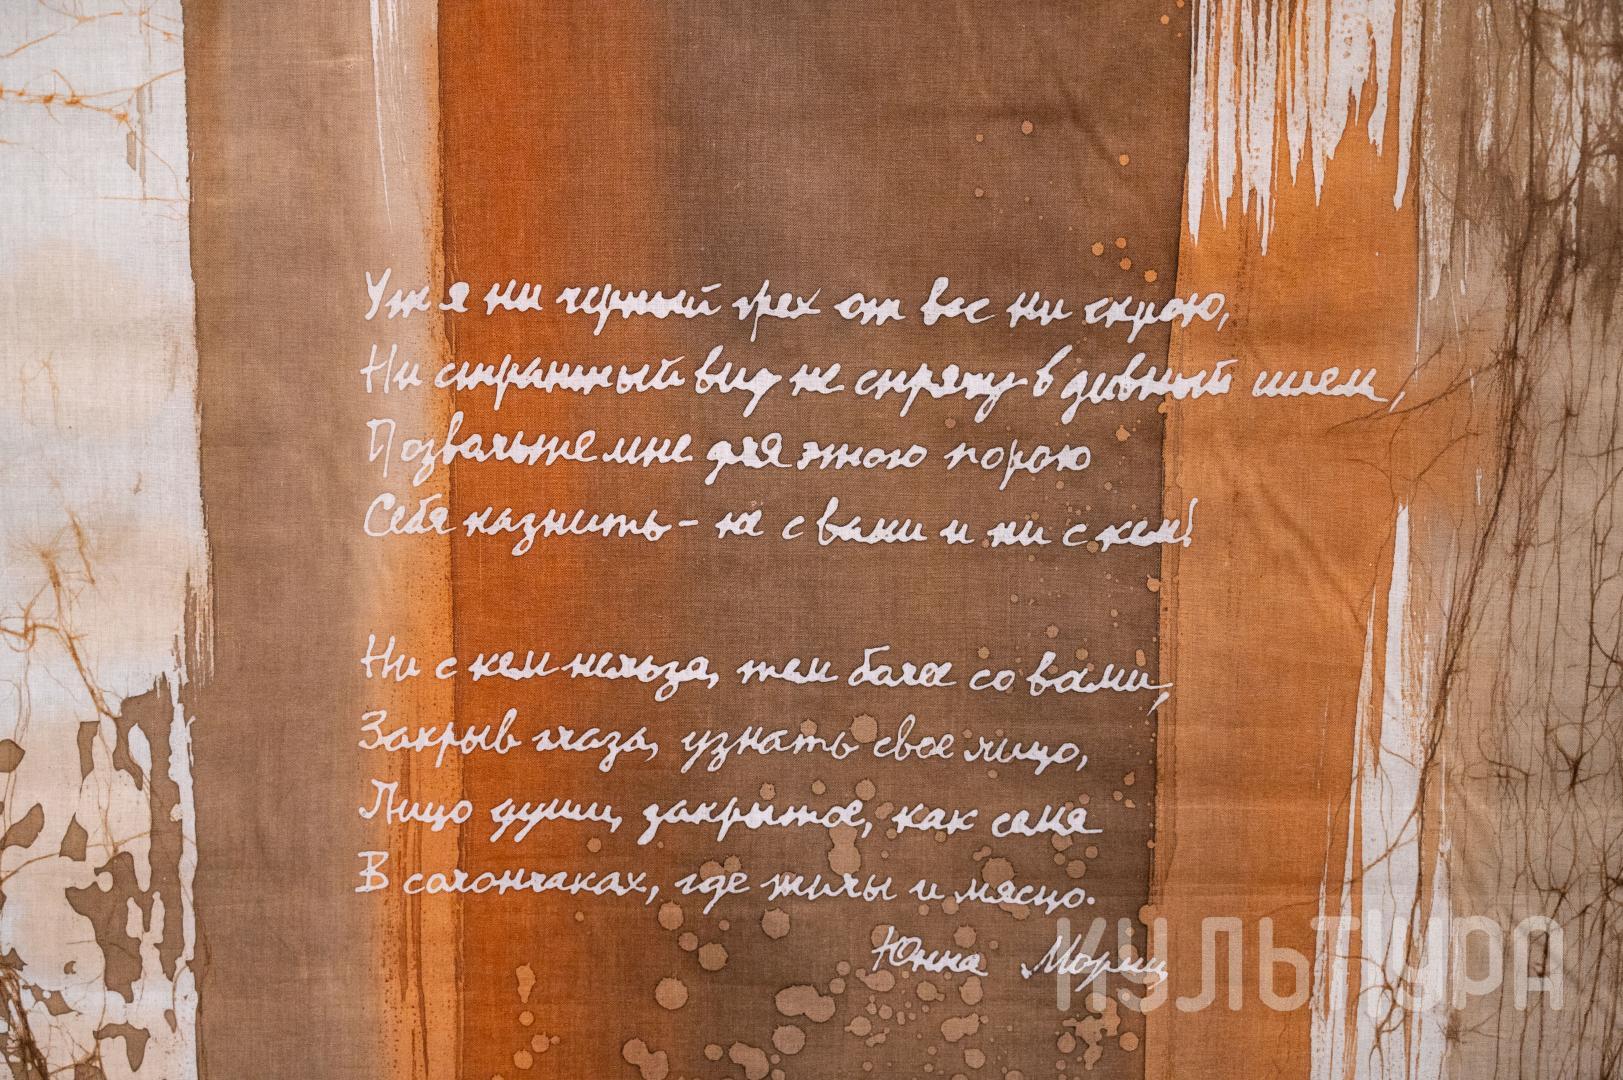 Уж я ни черный грех от вас ни скрою,
Ни странный вид не спрячу в дивный шлем,
Позвольте мне для этого порою
Себя казнить – не с вами и ни с кем!
Ни с кем нельзя, тем более со вами,
Закрыв глаза, узнать свое лицо,
Лицо души, закрытое, как семя
В солончаках, где жилы и мясцо.
Юнна Мориц
КУЛЬТУРА